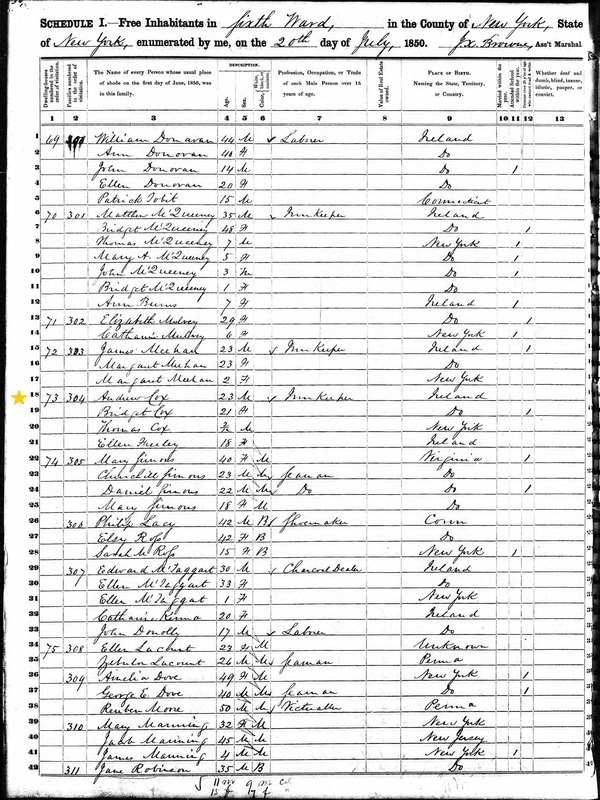 SCHEDULE I.—Free Inhabitants in Sixth Ward, in the County of New York, State
of New York, enumerated by me, on the 20th day of July, 1850. Ass't Marshal.
Dwelling-houses numbered in the order of visitation.
Families numbered in the order of visitation.
The Name of every Person whose usual place of abode on the first day of June, 1850, was in this family.
DESCRIPTION.
Age.
Sex.
Profession, Occupation, or Trade of each Male Person over 15 years of age.
Value of Real Estate owned.
PLACE OF BIRTH. Naming the State, Territory, or Country.
Married within the year.
Attended School within the year.
Whether deaf and dumb, blind, insane, idiotic, pauper, or convict.
1 2 3 4 5 6 7 8 9 10 11 12 13
1 69 William Donavan 44 M Laborer Ireland
2 Ann Donovan 40 F Do
3 John Donovan 14 M Do 1
4 Ellen Donovan 20 F Do
5 Patrick Tobit 15 M Connecticut
6 70 301 Matthew McQueeney 35 M Inn Keeper Ireland
7 Bridget McQueeney 48 F Do 1
8 Thomas McQueeney 7 M New York 1
9 Mary A. McQueeney 5 F Do 1
10 John McQueeney 3 M Do 1
11 Bridget McQueeney 1 F Do
12 Ann Burns 7 F Ireland 1
13 71 302 Elizabeth Mulvey 29 F Do 1
14 Catharine Mulvey 6 F New York 1
15 72 303 James Meehan 23 M Inn Keeper Ireland 1
16 Margaret Meehan 23 F Do
17 Margaret Meehan 2 F New York
18 73 304 Andrew Cox 23 M Inn Keeper Ireland
19 Bridget Cox 21 F Do 1
20 Thomas Cox M New York
21 Ellen 18 F Ireland
22 74 305 Mary Simons 40 F M Virginia 1
23 Churchill Simons 23 M M Seaman Do
24 Daniel Simons 22 M M Do Do 1
25 Mary Simons 18 F M Do
26 306 Philip Lacy 42 M B Shoemaker Conn
27 Elsy Ross 42 F B Do
28 Sarah M Ross 15 F B New York 1
29 307 Edward McTaggart 30 M Charcoal Dealer Ireland
30 Ellen McTaggart 33 F Do
31 Ellen McTaggart 1 F New York
32 Catharine 20 F Ireland
33 John Donolly 17 M Laborer Do
34 75 308 Ellen Lacount 23 F M Unknown
35 Zebulon Lacount 26 M M Seaman Penna
36 309 Amelia Dove 49 F M New York 1
37 George E. Dove 40 M M Seaman Do 1
38 Reuben Moore 50 M M Victualler Penna
39 310 Mary Manning 32 F M New York
40 Jacob Manning 45 M M New Jersey
41 James Manning 4 M M New York 1
42 311 Jane Robinson 35 M B Do